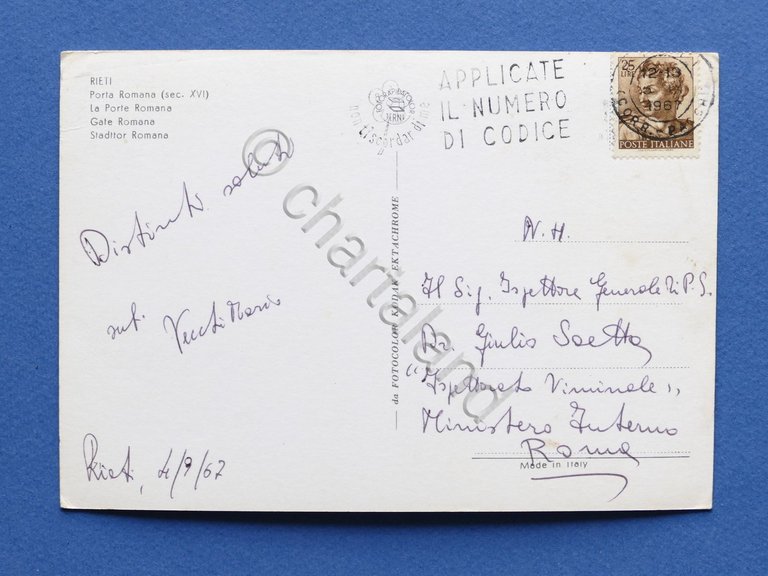 RIETI
Porta Romana (sec. XVI)
La Porte Romana
Gate Romana
Stadttor Romana
Distinti saluti
Vecchi Mario
Rieti, 4/9/67
da FOTOCOLOR KODAK EKTACHROME
non ti scordar di me
APPLICATE
IL NUMERO
DI CODICE
25
LIRE
12-13
1967
CORR. PA
POSTE ITALIANE
N. H.
Il Sig. Ispettore Generale di P.S.
Dr. Giulio Saetta
"Ispettorato Viminale"
Ministero Interno
Roma
Made in Italy
© chartaland